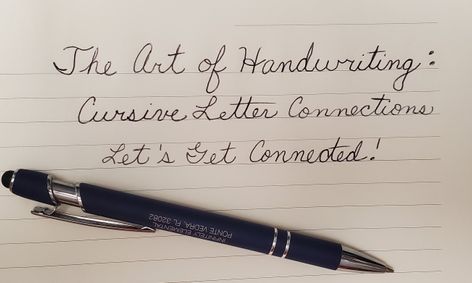 The Art of Handwriting:
Cursive Letter Connections
Let's Get Connected!
INFINITELY ELEMENTAL
PONTE VEDRA, FL 32082